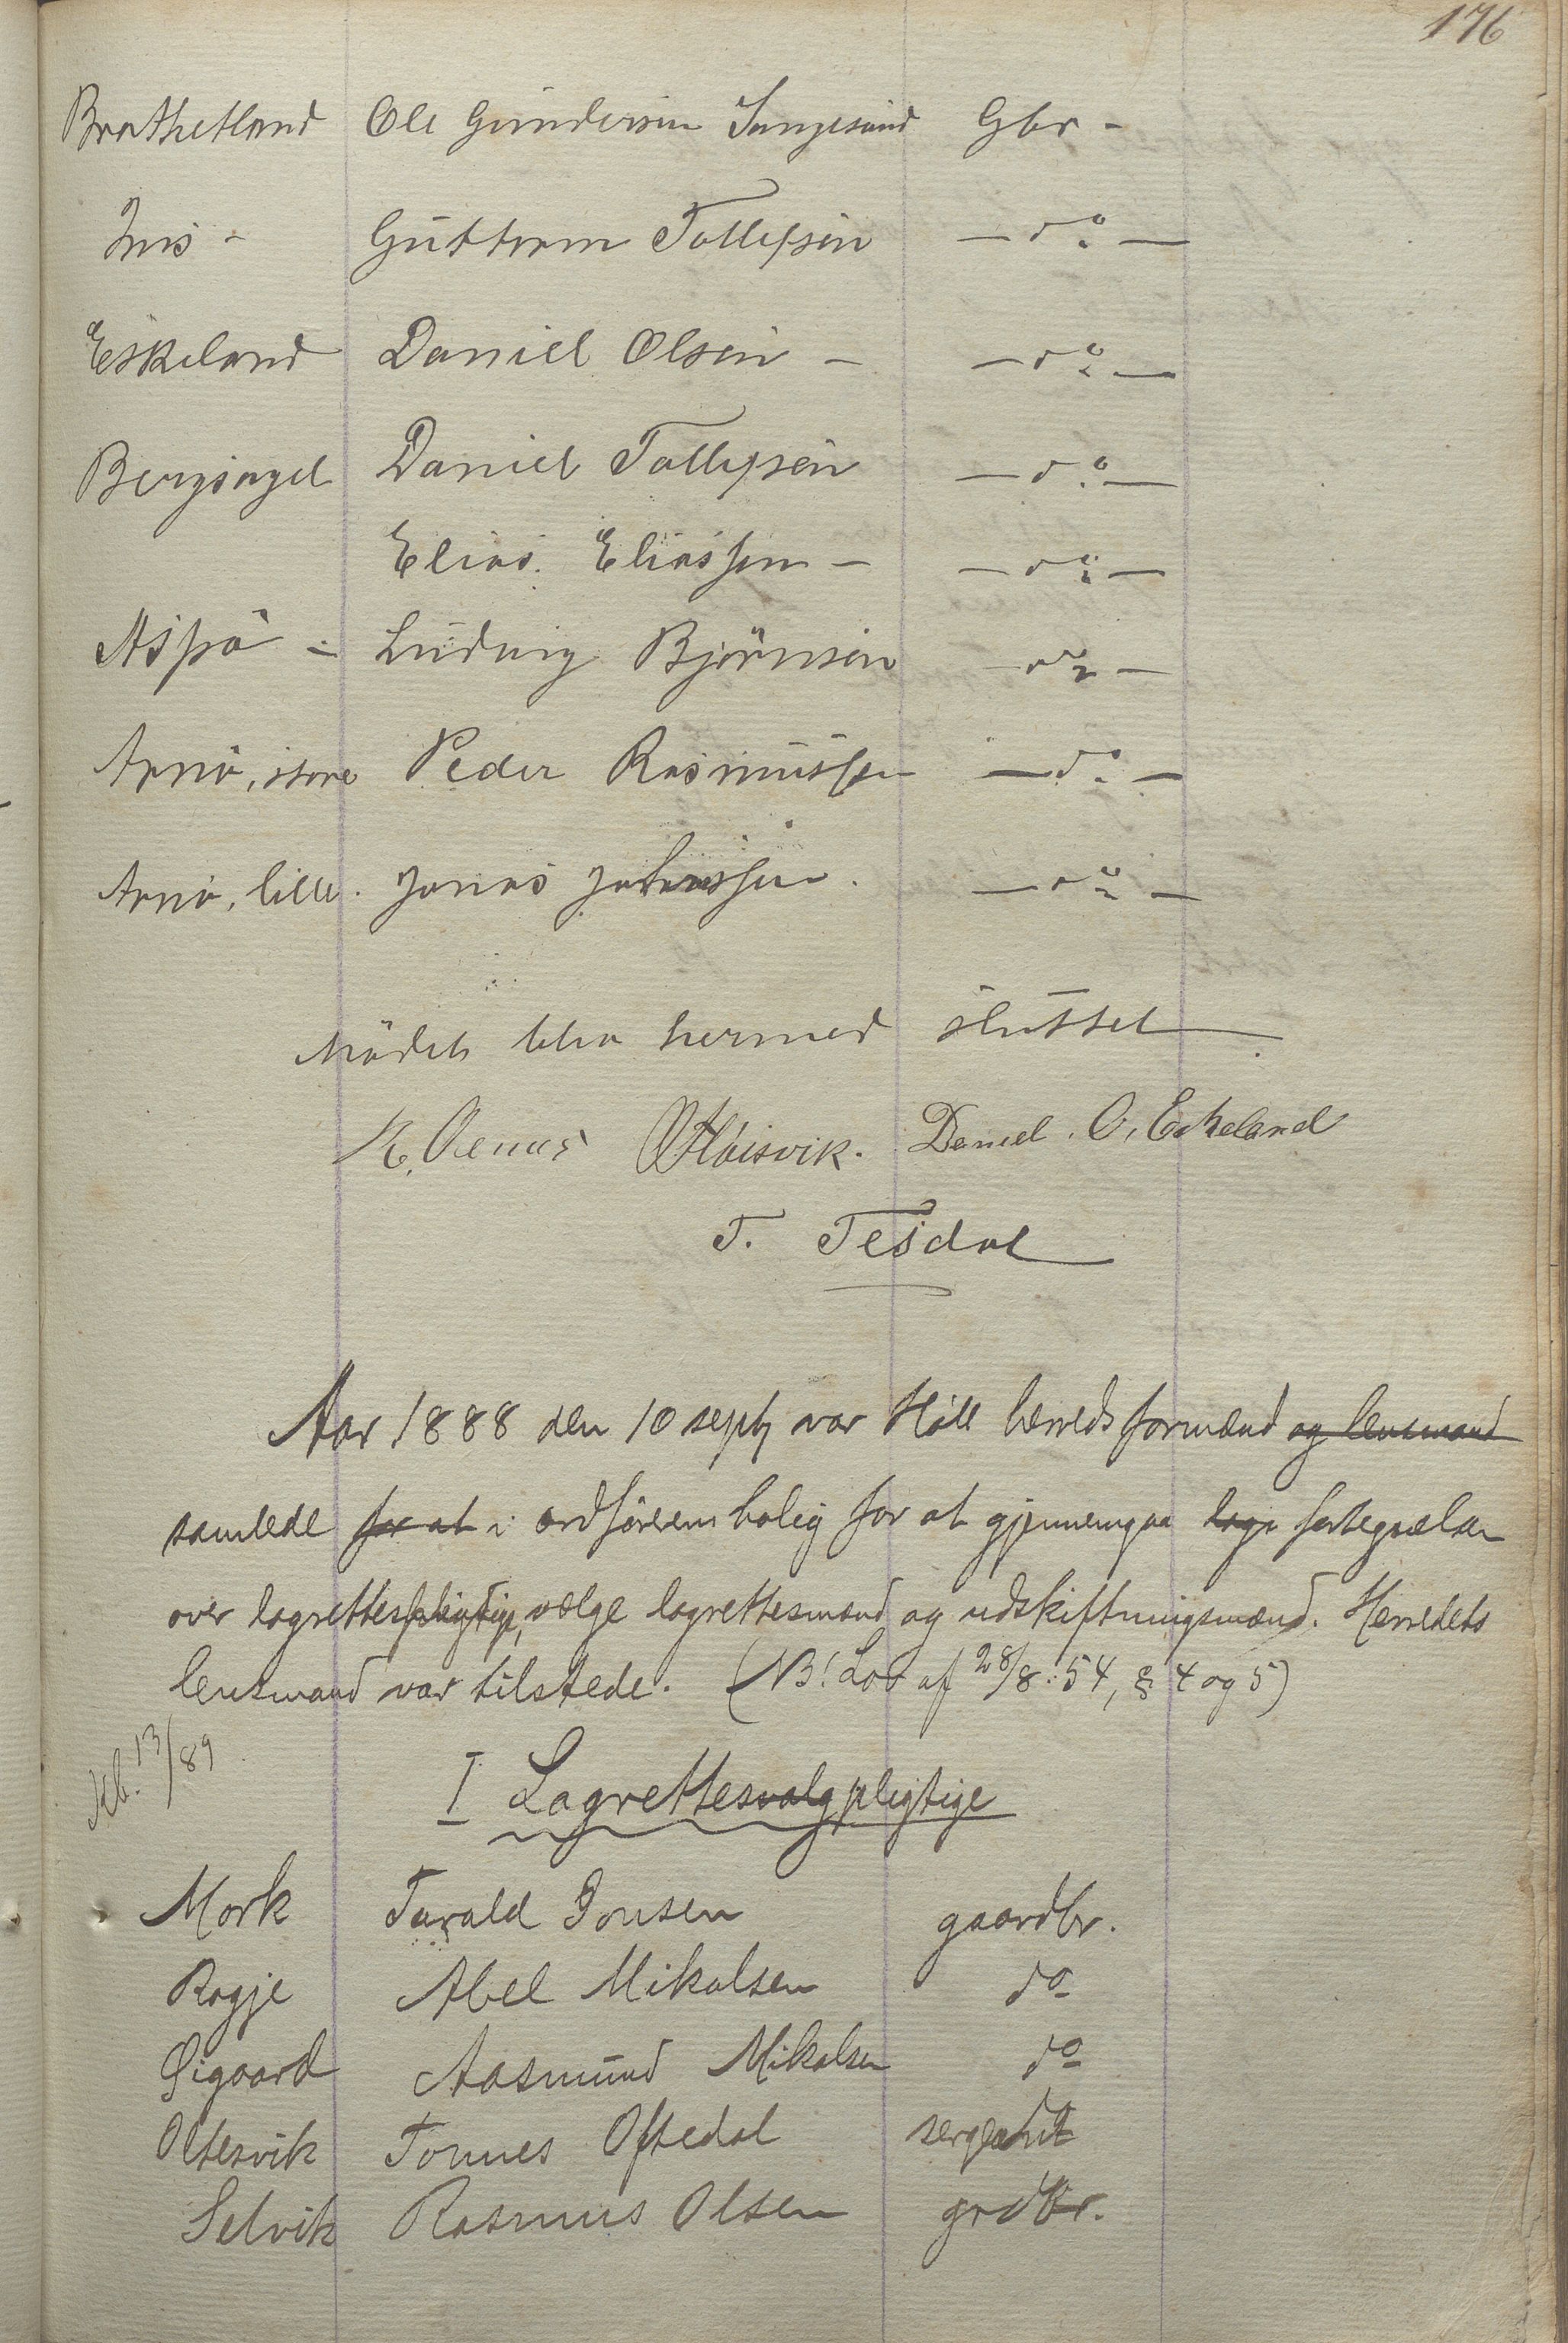 176
Brattetland Ole Gundersen Gbr -
Guttorm Tollefsen — do —
Eskeland Daniel Olsen - — do —
Bergsagel Daniel Tollefsen — do —
Elias Eliassen - — do —
Aspö - Ludvig Björnsen — do —
Arnö, store Peder Rasmussen — do —
Arnö, lille. Jonas — do —
Mödet blev hermed sluttet
Höisvik. Daniel. O. Eskeland
T. Tejdal
Aar 1888 den 10 septb var Höle herreds formænd og lensmand
samlede for at i ordförerens bolig for at gjennemgaa fortegnelsen
over lagrettespligtige, vælge lagrettesmænd og udskiftningsmænd. Herredets
lensmand var tilstede. (NB! Lov af 28/8 54, § 4 og 5)
Kb. 13/89
I Lagrettesvalgpligtige
Mork Tarald Jonsen gaardbr.
Ragje Abel Mikalsen do
Øigaard Aasmund Mikalsen do
Oltesvik Tonnes Oftedal sergeant
Selvik Rasmus Olsen grdbr.